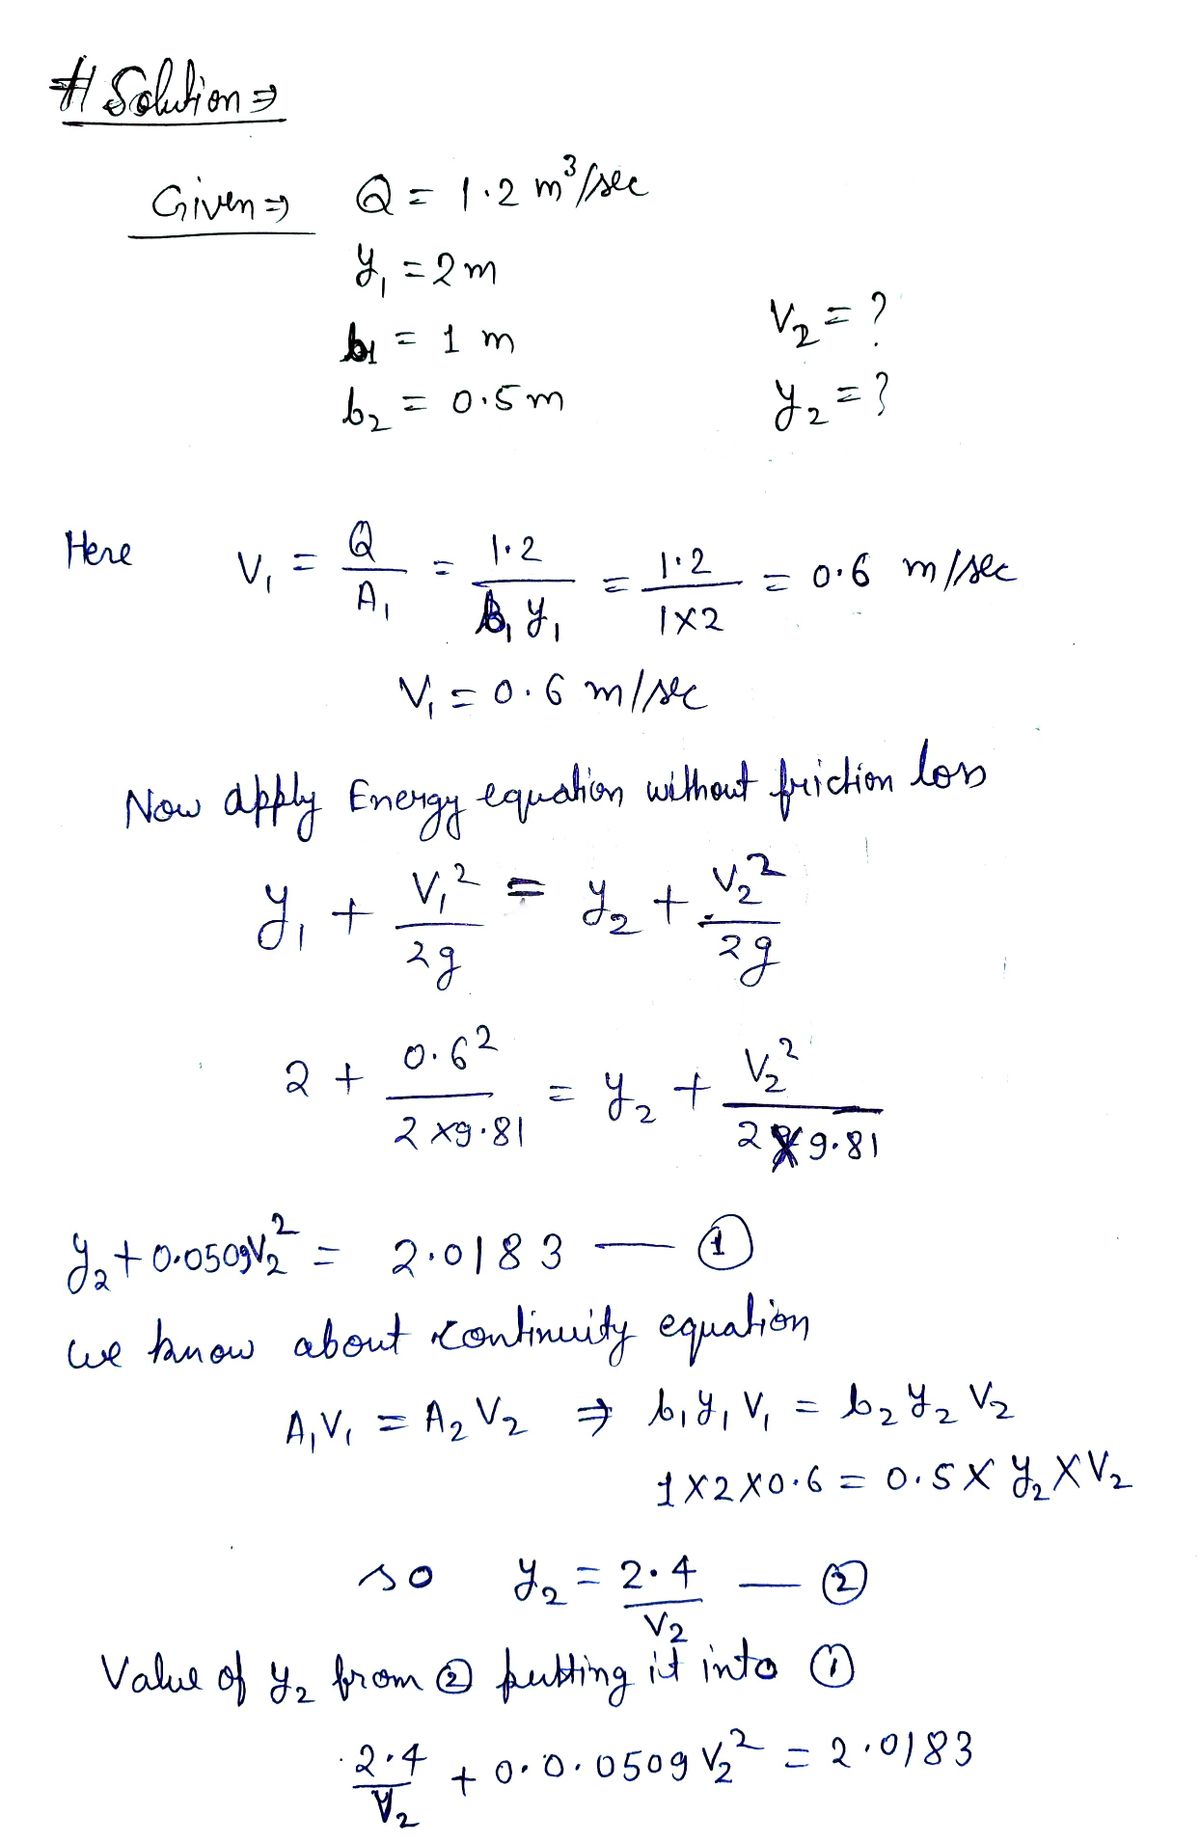 # Solution ⇒
Given ⇒ Q = 1.2 m³/sec
y₁ = 2 m
b₁ = 1 m
V₂ = ?
b₂ = 0.5 m
y₂ = ?
Here V₁ = Q/A₁ = 1.2/(B₁ y₁) = 1.2/(1×2) = 0.6 m/sec
V₁ = 0.6 m/sec
Now apply Energy equation without friction loss
y₁ + V₁²/2g = y₂ + V₂²/2g
2 + 0.6²/(2×9.81) = y₂ + V₂²/(2×9.81)
y₂ + 0.0509V₂² = 2.0183 — ①
we know about continuity equation
A₁V₁ = A₂V₂ ⇒ b₁y₁V₁ = b₂y₂V₂
1×2×0.6 = 0.5×y₂×V₂
so y₂ = 2.4/V₂ — ②
Value of y₂ from ② putting it into ①
2.4/V₂ + 0.0.0509V₂² = 2.0183